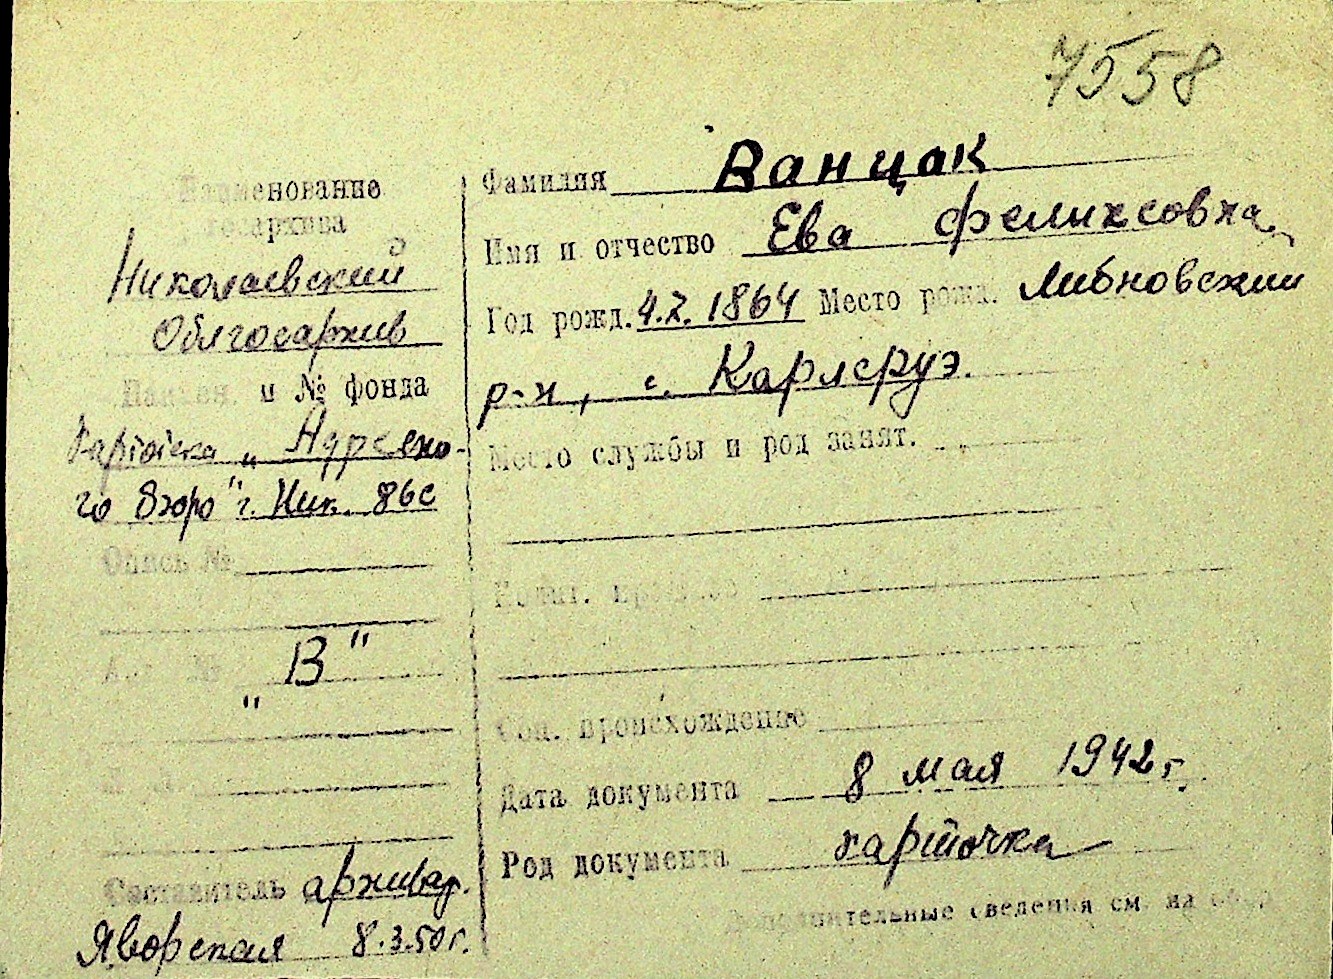 7558
Наименование
госархива
Николаевский
Облгосархив
Наимен. и № фонда
Картотека „Адресно-
го бюро" г. Ник. 86с
Опись №
„В"
Составитель архивар.
Яворская 8.3.50г.
Фамилия Ванцак
Имя и отчество Ева Феликсовна
Год рожд. 4.2.1864 Место рожд. Либновский
р-н, с. Карлсруэ.
Место службы и род занят. -„-
Соц. происхождение
Дата документа 8 мая 1942г.
Род документа карточка
Дополнительные сведения см. на обор.